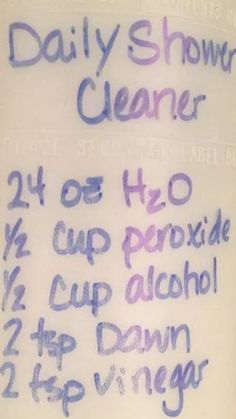 Daily Shower
Cleaner
24 oz H₂O
½ cup peroxide
½ cup alcohol
2 tsp Dawn
2 tsp vinegar